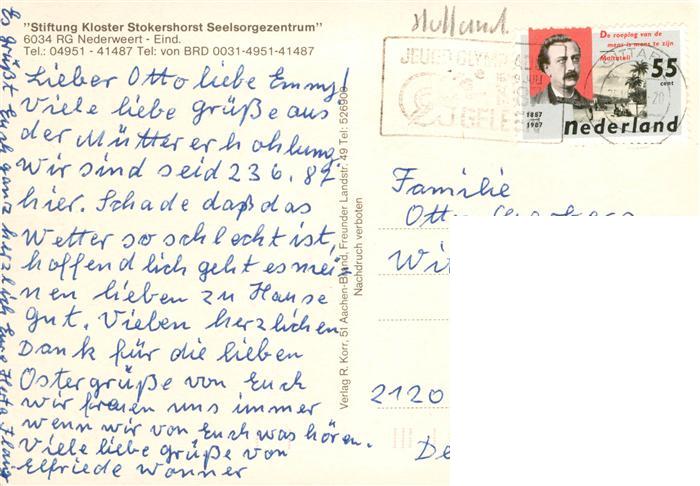 "Stiftung Kloster Stokershorst Seelsorgezentrum"
6034 RG Nederweert - Eind.
Tel.: 04951 - 41487 Tel: von BRD 0031-4951-41487
Lieber Otto liebe Emmy!
Viele liebe grüße aus
der Müttererhohlung
wir sind seid 23 6. 87
hier. Schade daß das
Wetter so schlecht ist,
hoffendlich geht es mei
nen lieben zu Hause
gut. Vielen herzlichen
Dank für die lieben
Ostergrüße von Euch
wir freuen uns immer
wenn wir von Euch was hören.
Viele liebe grüße von
Elfriede Wonner
Es grüßt Euch ganz herzlich Eure Herta
Verlag R. Korr, 51 Aachen-Brand, Freunder Landstr. 49 Tel: 526909
Nachdruck verboten
Holland
JEUGD OLYMP
GELE
De roeping van de
mens is mens te zijn
Multatuli
55
cent
1887
1987
nederland
Familie
Otto
Wi
2120
De